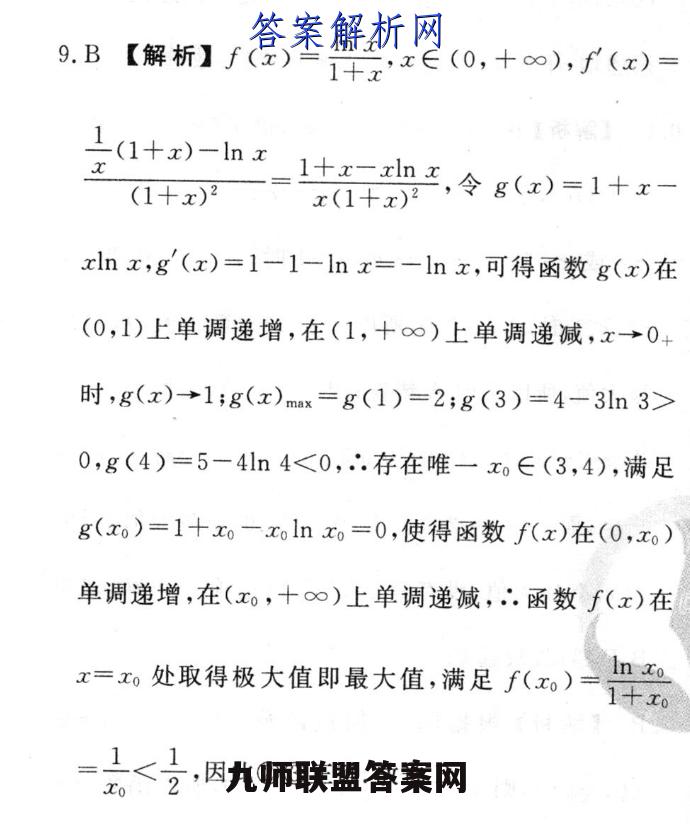 答案解析网
9.B 【解析】f(x)=\frac{ln x}{1+x},x∈(0,+∞),f′(x)=
\frac{\frac{1}{x}(1+x)-ln x}{(1+x)²}=\frac{1+x-xln x}{x(1+x)²},令 g(x)=1+x-
xln x,g′(x)=1-1-ln x=-ln x,可得函数 g(x)在
(0,1)上单调递增,在(1,+∞)上单调递减,x→0₊
时,g(x)→1;g(x)max=g(1)=2;g(3)=4-3ln 3>
0,g(4)=5-4ln 4<0,∴存在唯一 x₀∈(3,4),满足
g(x₀)=1+x₀-x₀ln x₀=0,使得函数 f(x)在(0,x₀)
单调递增,在(x₀,+∞)上单调递减,∴函数 f(x)在
x=x₀ 处取得极大值即最大值,满足 f(x₀)=\frac{ln x₀}{1+x₀}
=\frac{1}{x₀}<\frac{1}{2},因
九师联盟答案网